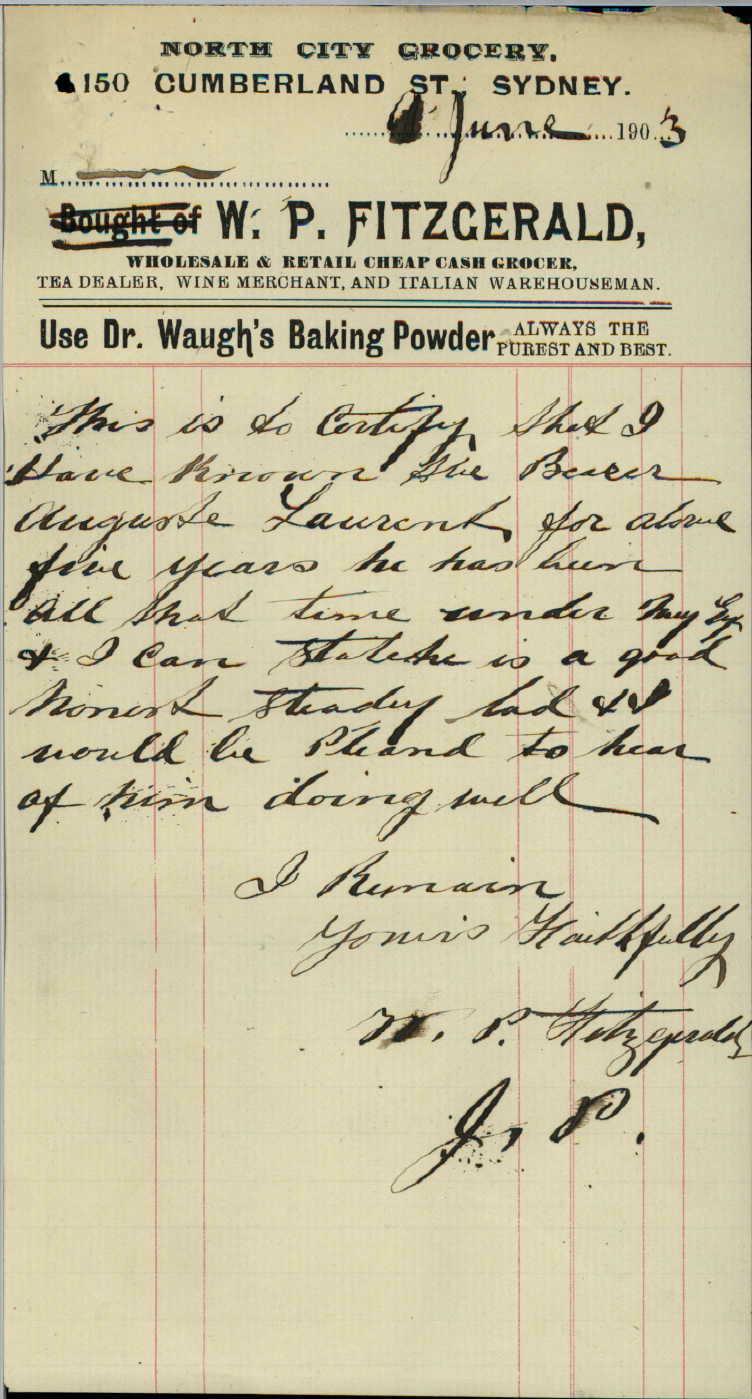 NORTH CITY GROCERY.
150 CUMBERLAND ST., SYDNEY.
June 1903
M
Bought of W. P. FITZGERALD,
WHOLESALE & RETAIL CHEAP CASH GROCER,
TEA DEALER, WINE MERCHANT, AND ITALIAN WAREHOUSEMAN.
Use Dr. Waugh's Baking Powder ALWAYS THE PUREST AND BEST.
This is to Certify that I
Have Known the Bearer
Auguste Laurent, for above
five years he has been
All that time under My Eye
& I Can State he is a good
Honest Steady lad & I
would be Pleasd to hear
of him doing well
I Remain
Yours Faithfully
W. P. Fitzgerald
J. P.